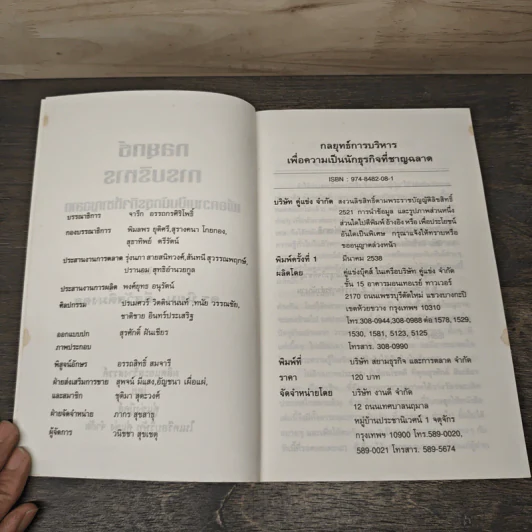 บรรณาธิการ จาริก อรรถกรศิริโพธิ์
กองบรรณาธิการ พิมลพร ยุติศรี, สุรางคนา โกยกอง,
สุธาทิพย์ ตรีรัตน์
ประสานงานการตลาด รุ่งนภา สายสนิทวงศ์, สันทนี สุวรรณพฤกษ์,
ปรานอม สุทธิอำนวยกูล
ประสานงานการผลิต พงศ์ยุทธ อนุรัตน์
ศิลปกรรม วัตตินานนท์, ทนัย วรรณชัย,
ชาติชาย อินทร์ประเสริฐ
ออกแบบปก สุรศักดิ์ ฝั้นเขียว
ภาพประกอบ
พิสูจน์อักษร อรรถสิทธิ์ สมจารี
ฝ่ายส่งเสริมการขาย สุพจน์ มีแสง, อัญชนา เผื่อแผ่,
และสมาชิก ชุติมา
ฝ่ายจัดจำหน่าย ภากร สุขสาธุ
ผู้จัดการ วนิชชา สุขเชตุ
กลยุทธ์การบริหาร
เพื่อความเป็นนักธุรกิจที่ชาญฉลาด
ISBN : 974-8462-08-1
บริษัท คู่แข่ง จำกัด สงวนลิขสิทธิ์ตามพระราชบัญญัติลิขสิทธิ์
2521 การนำข้อมูล และรูปภาพส่วนหนึ่ง
ส่วนใดไปตีพิมพ์ อ้างอิง หรือ เพื่อประโยชน์
อันใดเป็นพิเศษ กรุณาแจ้งให้ทราบหรือ
ขออนุญาตล่วงหน้า
พิมพ์ครั้งที่ 1 มีนาคม 2538
ผลิตโดย คู่แข่งบุ๊คส์ ในเครือบริษัท คู่แข่ง จำกัด
ชั้น 15 อาคารมอนเทอเรย์ ทาวเวอร์
2170 ถนนเพชรบุรีตัดใหม่ แขวงบางกะปิ
เขตห้วยขวาง กรุงเทพฯ 10310
โทร.308-0944,308-0988 ต่อ 1578, 1529,
1530, 1581, 5123, 5125
โทรสาร. 308-0990
พิมพ์ที่ บริษัท สยามธุรกิจ และการตลาด จำกัด
ราคา 120 บาท
จัดจำหน่ายโดย บริษัท งานดี จำกัด
12 ถนนเทศบาลนฤมาล
หมู่บ้านประชานิเวศน์ 1 จตุจักร
กรุงเทพฯ 10900 โทร.589-0020,
589-0021 โทรสาร. 589-5674